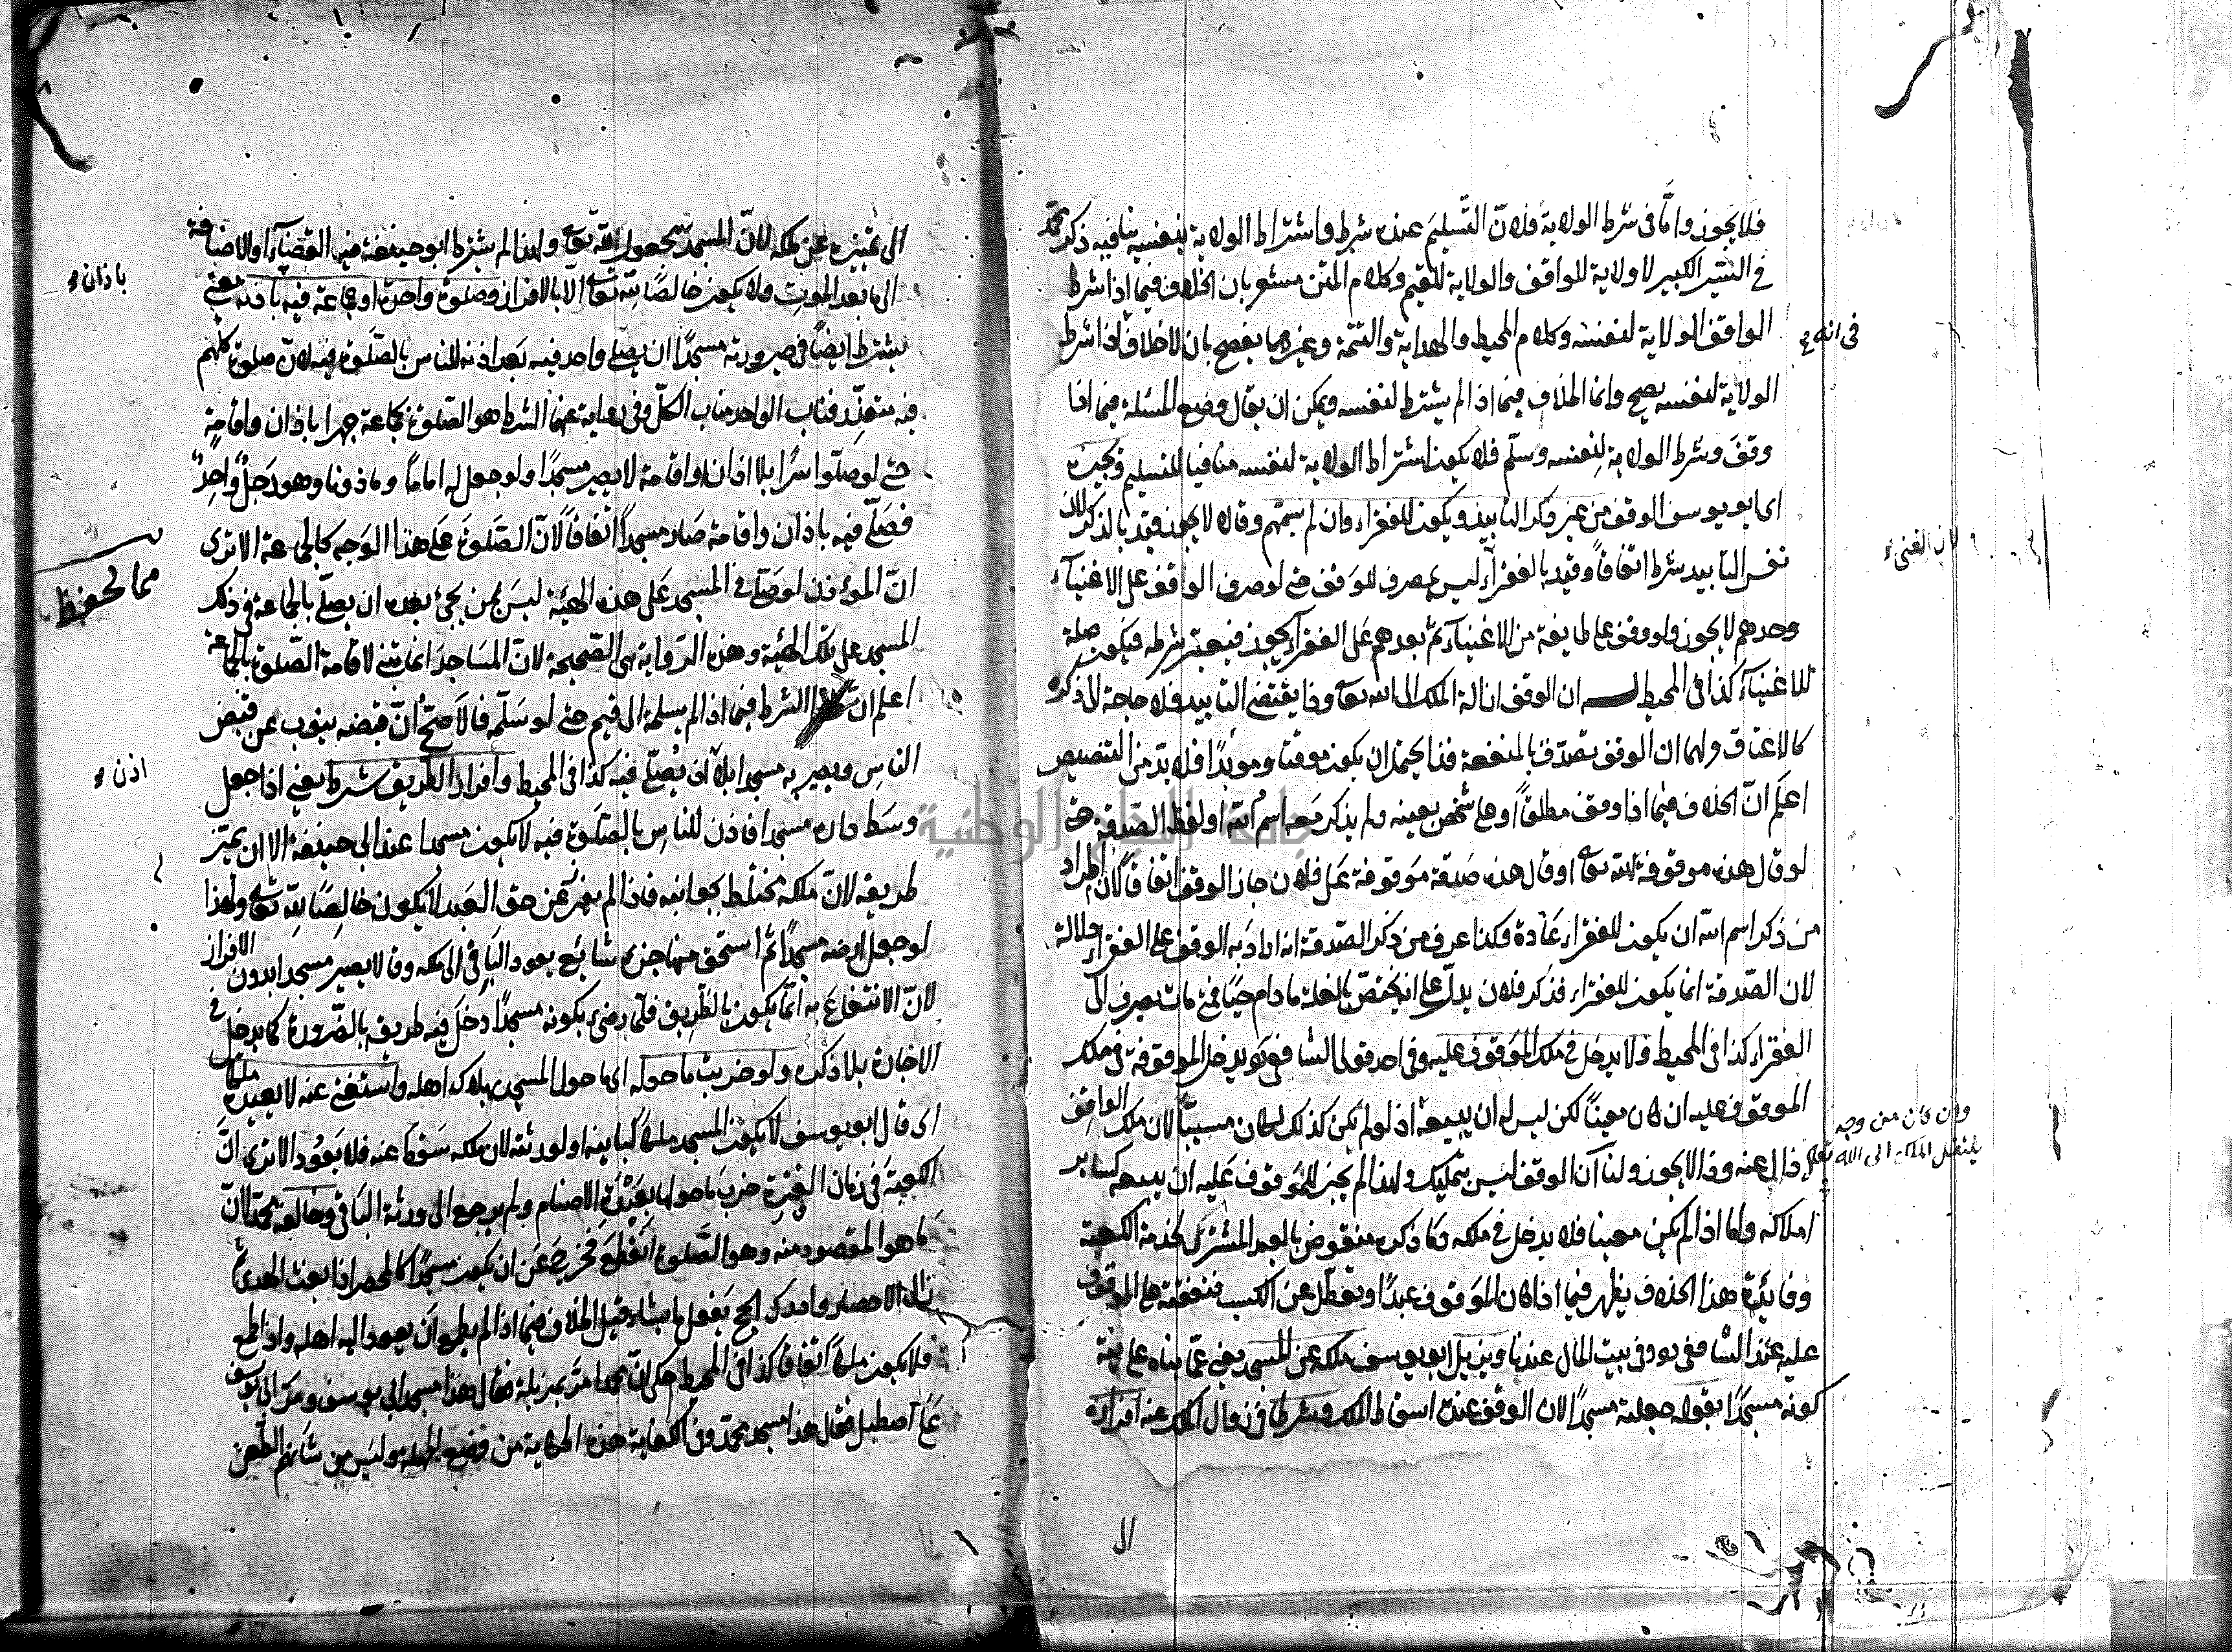 فلا يجوز واما في شرط الولاية فلان التسليم عنده شرط واشتراط الولاية لنفسه ينافيه ذكر محمد
في السير الكبير لا ولاية للواقف والولاية للقيم وكلام المتن مشعر بان الخلاف فيما اذا شرط
الواقف الولاية لنفسه وكلام المحيط والهداية والتتمة وغيرهما يفصح بان لا خلاف اذا شرط
في انه
الولاية لنفسه يصح وانما الخلاف فيما اذا لم يشترط لنفسه ويمكن ان يقال وضع المسئلة فيما اذا
وقف وشرط الولاية لنفسه وسلم فلا يكون اشتراط الولاية لنفسه منافيا للتسليم ويجيز
ابو يوسف الوقف من غير ذكر التابيد ويكون للفقراء وان لم يسمهم وقالا لا يجوز وقيد بالذكر لان
لان الغنى
نفس التابيد شرط اتفاقا وقيد بالفقراء ليس بمصرف للوقف حتى لو صرف الواقف على الاغنياء
وحدهم لا يجوز ولو وقف على طايفة من الاغنياء ثم بعدهم على الفقراء يجوز فيعتبر شرطه فيكون صلة
للاغنياء كذا في المحيط له ان الوقف ازالة الملك الى الله تعالى وذا يقتضي التابيد فلا حاجة الى ذكره
كالاعتاق ولهما ان الوقف تصدق بالمنفعة فذا يحتمل ان يكون موقتا وموبدا فلا بد من التنصيص
اعلم ان الخلاف فيما اذا وقف مطلقا او على شخص بعينه ولم يذكر معه اسم الله او لفظ الصدقة حتى
لو قال هذه موقوفة لله تعالى او قال هذه صدقة موقوفة على فلان جاز الوقف اتفاقا لان المراد
من ذكر اسم الله ان يكون للفقراء عادة وكذا عرف من ذكر الصدقة انه اراد به الوقف على الفقراء
لان الصدقة انما يكون للفقراء فذكر فلان يدل على انه يختص بالغلة ما دام حيا فمتى مات يصرف الى
الفقراء كذا في المحيط ولا يدخل في ملك الموقوف عليه وفي احد قولي الشافعي يدخل الموقوفة في ملك
الموقوف عليه ان كان معينا لكن ليس له ان يبيعه اذ لو لم يكن كذلك لكان مسيبا لان ملك الواقف
وان كان من وجه
ينتقل الملك الى الله تعالى
زال عنه وذا لا يجوز ولنا ان الوقف ليس بتمليك ولهذا لم يجز للموقوف عليه ان يبيعه كساير
املاكه واما اذا لم يكن معينا فلا يدخل في ملكه وما ذكره منقوض بالعبد المشترى لخدمة الكعبة
وفائدة هذا الخلاف يظهر فيما اذا كان الموقوف عبدا وتعطل عن الكسب فنفقته على الموقوف
عليه عند الشافعي وفي بيت المال عندنا ويزيل ابو يوسف ملكه عن المسجد يعني عما بناه على نية
كونه مسجدا بقوله جعلته مسجدا لان الوقف عنده اسقاط الملك وشرطا في زوال الملك عنه افرازه
الى تمييزه عن ملكه لان المسجد يجعل لله تعالى ولهذا لم يشترط ابو حنيفة فيه القضاء او الاضافة
الى ما بعد الموت ولا يكون خالصا لله تعالى الا بالافراز وصلوة واحد او جماعة فيه باذنه يعني
باذان
يشترط ايضا في صيرورته مسجدا ان يصلي واحد فيه بعد اذنه للناس بالصلوة فيه لان صلوة كلهم
فيه متعذر فناب الواحد مناب الكل وفي رواية عنهما الشرط هو الصلوة بجماعة جهرا باذان واقامة
حتى لو صلوا سرا بلا اذان واقامة لا يصير مسجدا ولو جعل له اماما وماذونا وهو رجل واحد
فصلى فيه باذان واقامة صار مسجدا اتفاقا لان الصلوة على هذا الوجه كالجماعة الا ترى
ان المؤذن لو صلى في المسجد على هذه الهيئة ليس لمن يجئ بعده ان يصلي بالجماعة في ذلك
مما يحفظ
المسجد على تلك الهيئة وهذه الرواية هي الصحيحة لان المساجد انما تبنى لاقامة الصلوة بالجماعة
اعلم ان الشرط فيما اذا لم يسلمه الى قيم حتى لو سلمه فالاصح ان قبضه ينوب عن قبض
الناس ويصير به مسجدا بلا ان يصلى فيه كذا في المحيط وافراز الطريق شرط يعني اذا جعل
اذن
وسط داره مسجدا فاذن للناس بالصلوة فيه لا يكون مسجدا عند ابي حنيفة الا ان يميز
طريقه لان ملكه مختلط بجوانبه فاذا لم يفرز عن حق العبد لا يكون خالصا لله تعالى ولهذا
لو جعل ارضه مسجدا ثم استحق منها جزء شائع يعود الباقي الى ملكه وقالا يصير مسجدا بدون الافراز
لان الانتفاع به انما يكون بالطريق فلما رضي بكونه مسجدا دخل فيه طريقه بالضرورة كما يدخل في
الاجارة بلا ذكره ولو خربت ما حوله اي ما حول المسجد بهلاك اهله واستغنى عنه لا يعيده ملكا
اي قال ابو يوسف لا يكون المسجد ملكا لبانيه او لورثته لان ملكه سقط عنه فلا يعود الا ترى ان
الكعبة في زمان الفترة خرب ما حولها بعبدة الاصنام ولم يرجع الى ورثة الباني وخالفه محمد لان
ما هو المقصود منه وهو الصلوة انقطع فخرج عن ان يكون مسجدا كالمحصر اذا بعث الهدي ثم
زال الاحصار وادرك الحج يفعل ما شاء قيل الخلاف فيما اذا لم يطمع ان يعود اليه اهله واذا طمع
فلا يكون ملكا اتفاقا كذا في المحيط حكى ان محمدا مر بمزبلة فقال هذا مسجد ابي يوسف ومر ابو يوسف
على اصطبل فقال هذا مسجد محمد وفي الكفاية هذه الحكاية من وضع الجهلة وليس من شانهم الطعن